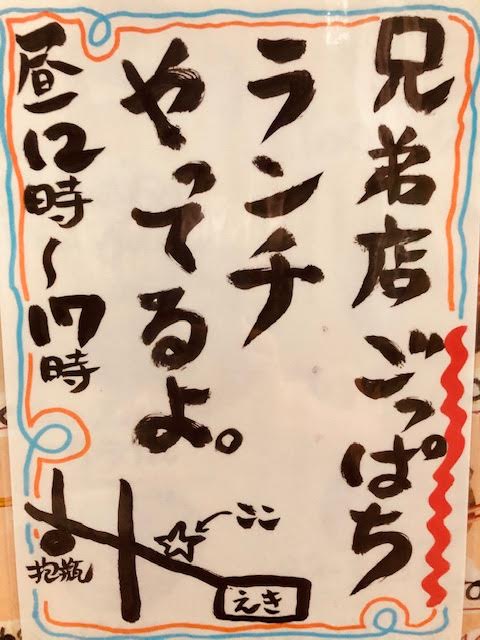 兄弟店ごっぱち
ランチ
やってるよ。
昼12時〜17時
ここ
えき
抱瓶